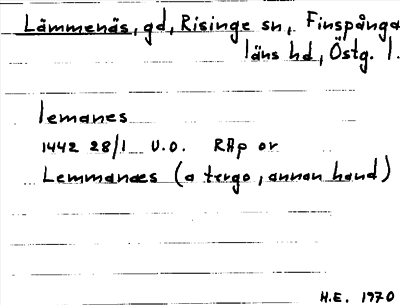 Lämmenäs, gd, Risinge sn, Finspånga
läns hd, Östg. l.
lemanes
1442 28/1 u.o. RAp or
Lemmanæs (a tergo, annan hand)
H.E. 1970